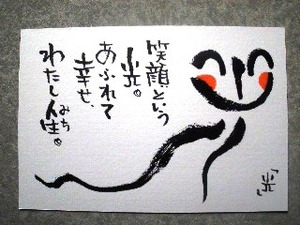 笑顔という
光。
あふれて
幸せ、
わたし人生。
みち
「光」